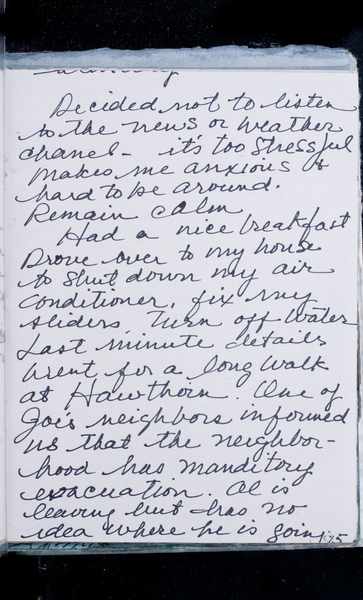 Decided not to listen
to the news or weather
chanel - it's too stressful
makes me anxious &
hard to be around.
Remain calm
Had a nice breakfast
Drove over to my house
to shut down my air
conditioner, fix my
sliders. Turn off water
Last minute details
Went for a long walk
at Hawthorn. One of
Joe's neighbors informed
us that the neighbor-
hood has manditory
evacuation. Al is
leaving but has no
idea where he is going